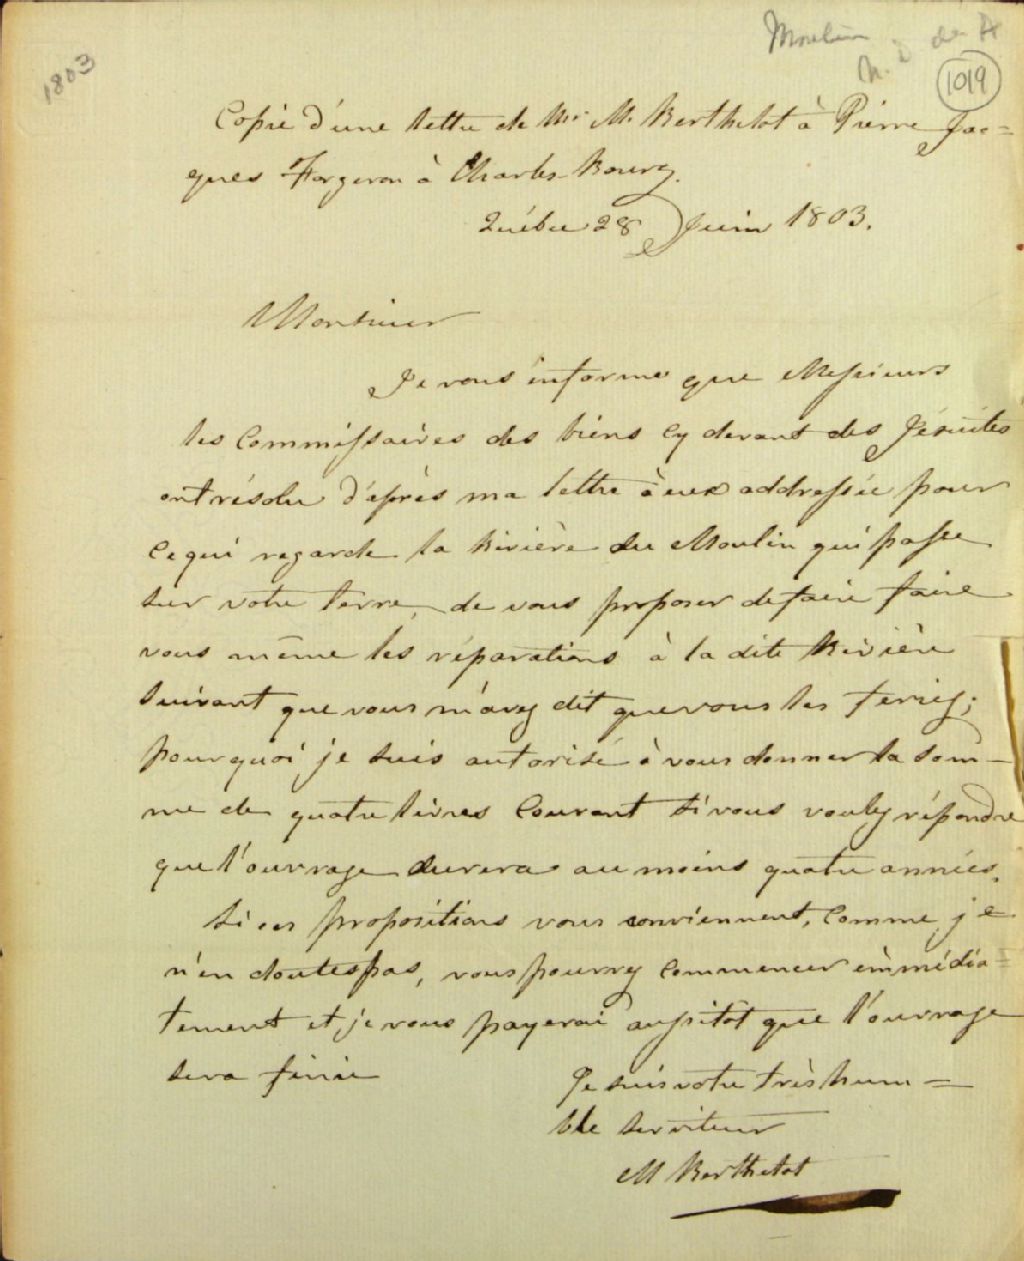 1803
Moulin
N. D de
1019
Copie d'une lettre de Mr. M. Berthelot à Pierre Jac=
ques Forgeron à Charles-Bourg.
Québec 28 Juin 1803.
Monsieur
Je vous informe que Messieurs
les Commissaires des biens cy devant des Jésuites
ont résolu d'après ma lettre à eux addressée pour
ce qui regarde la Rivière du Moulin qui passe
sur votre terre, de vous proposer de faire faire
vous même les réparations à la dite Rivière
suivant que vous m'avez dit que vous les feriez;
pourquoi je suis autorisé à vous donner la som-
me de quatre livres Courant si vous voulez répondre
que l'ouvrage durera au moins quatre années.
Si ces propositions vous conviennent, comme je
n'en doutes pas, vous pourrez commencer immédia=
tement et je vous payerai aussitôt que l'ouvrage
sera finie
Je suis votre très hum=
ble serviteur
M Berthelot